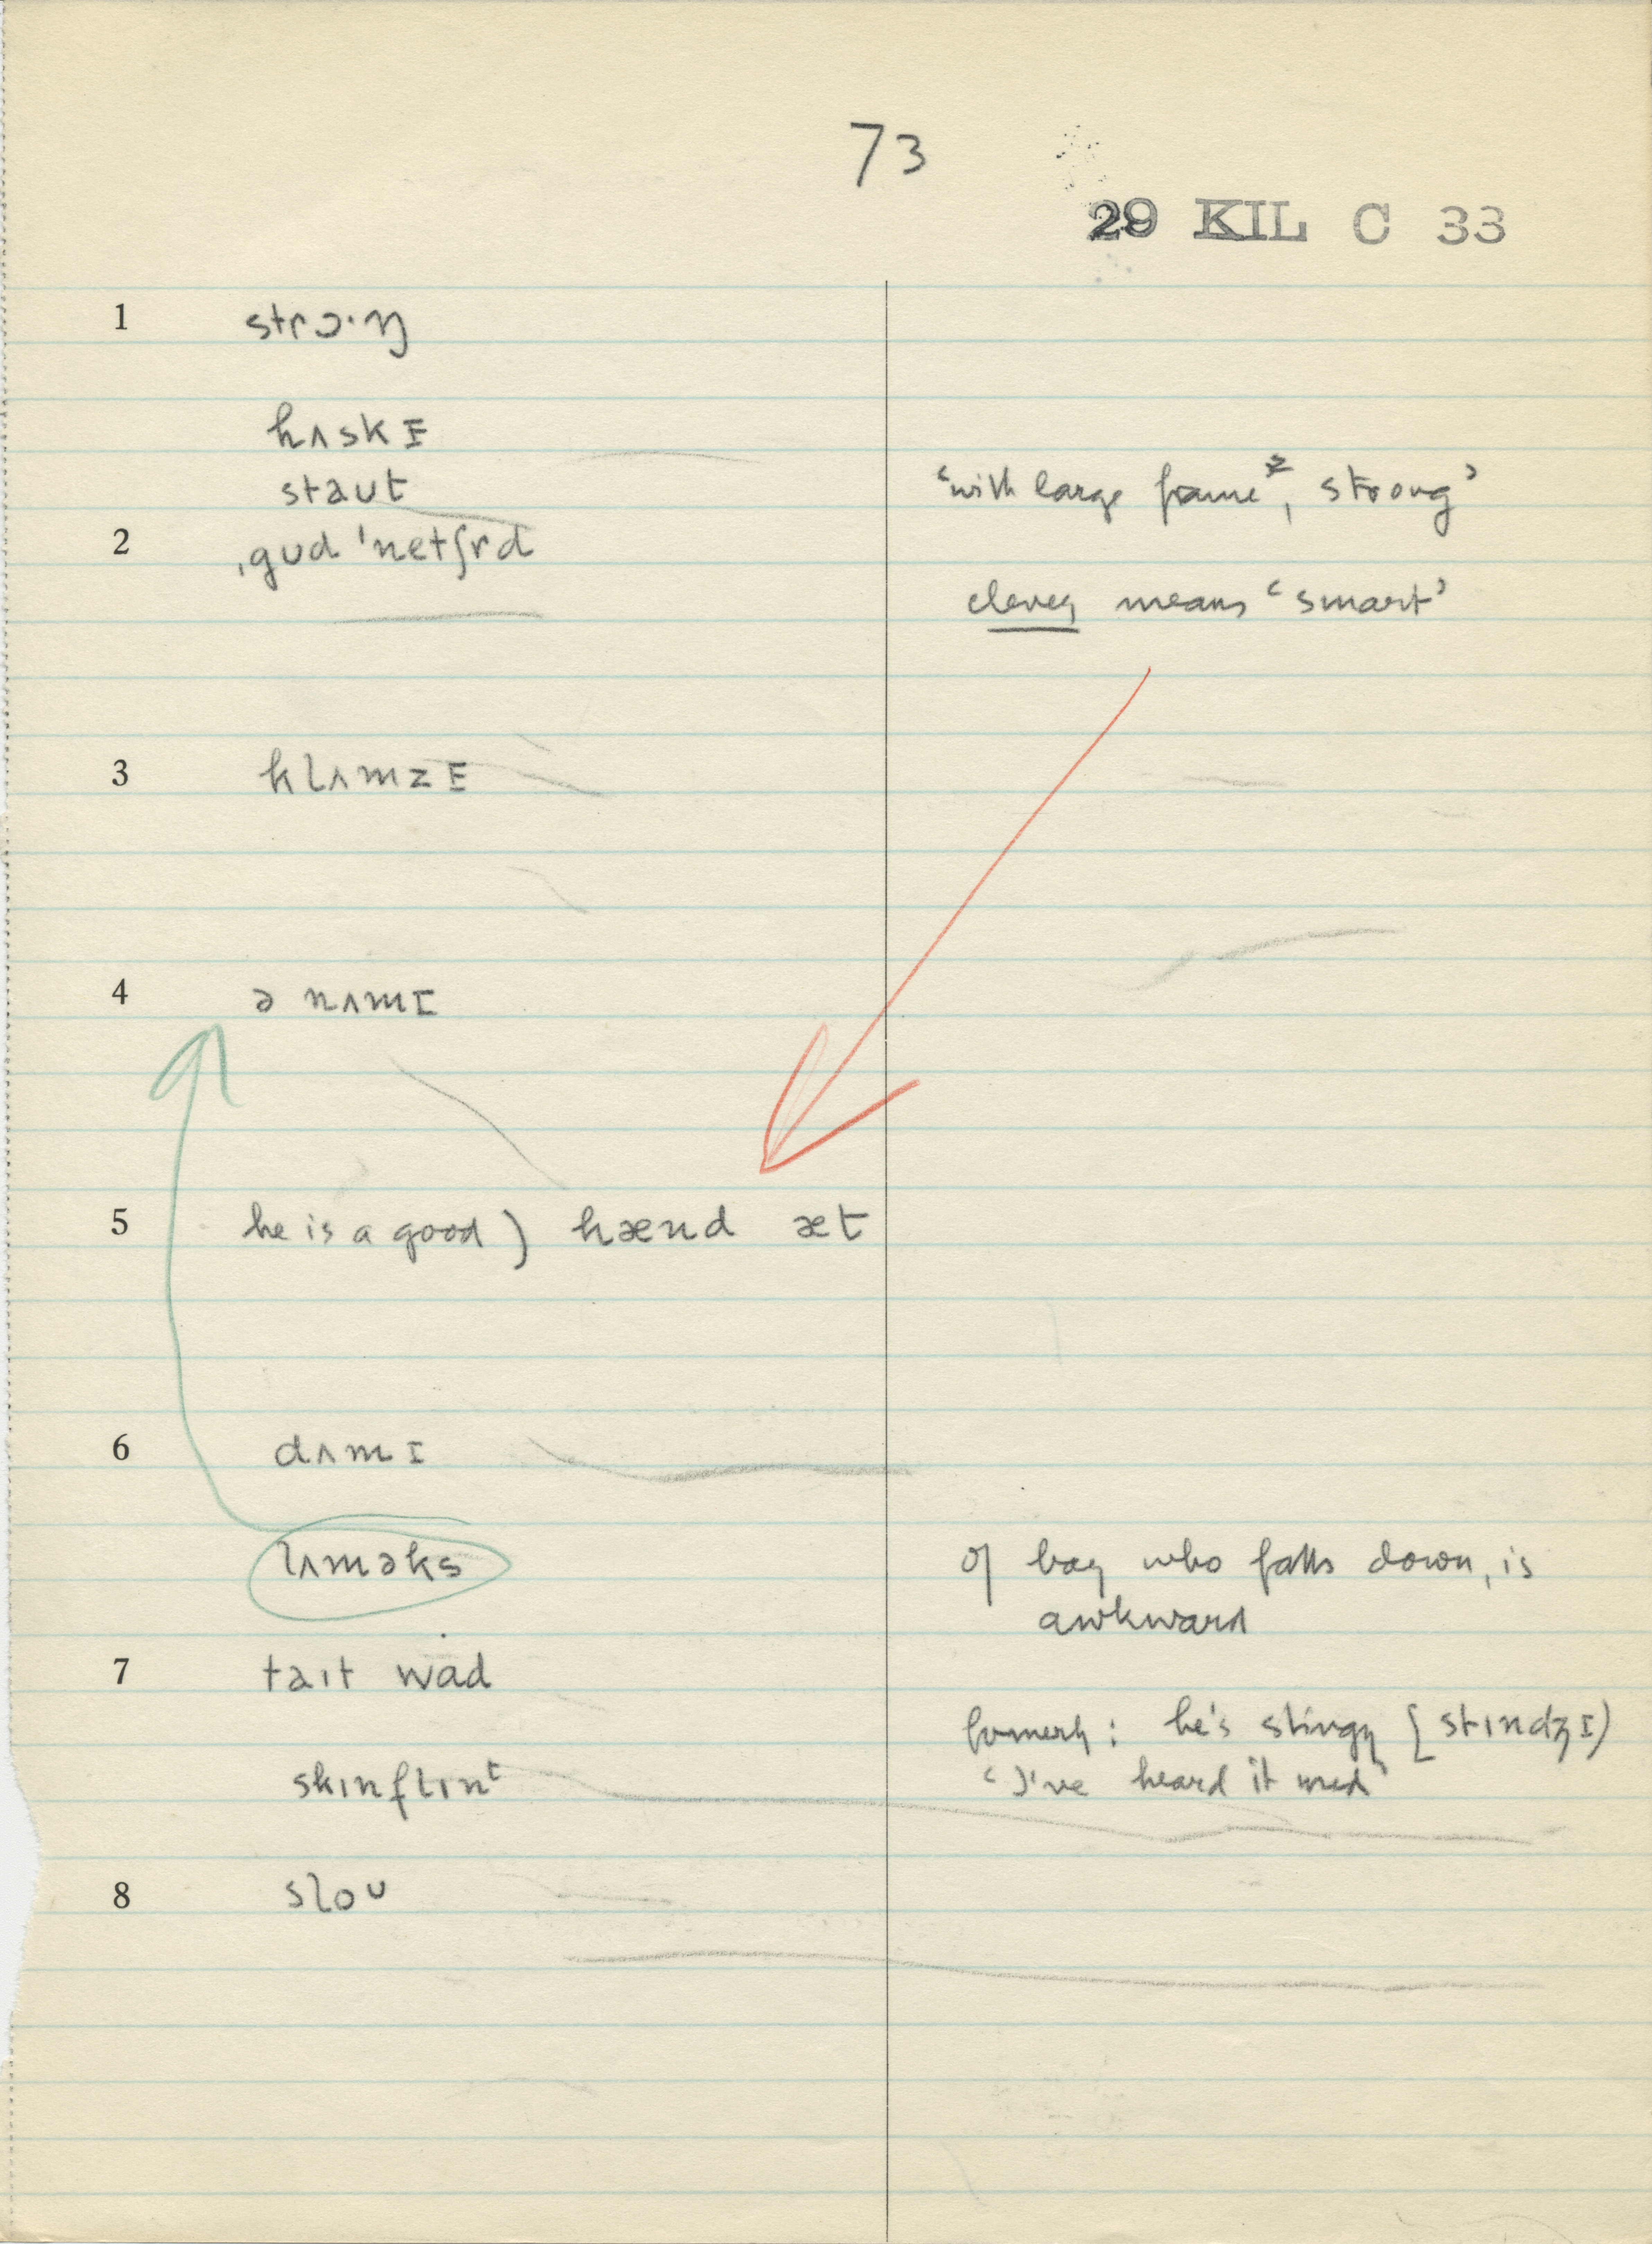 73
29 KIL C 33
1 strɔ·ŋ
hʌskɪ
staut
‘with large frame, strong’
2 ˌgud ˈnetʃrd
clever means ‘smart’
3 klʌmzɪ
4 ə nʌmɪ
5 he is a good) hænd æt
6 dʌmɪ
lʌməks
of boy who falls down, is
awkward
7 taɪt wad
he's stingy [stɪndʒɪ)
skɪnflɪnt
‘I've heard it used’
8 sloʊ